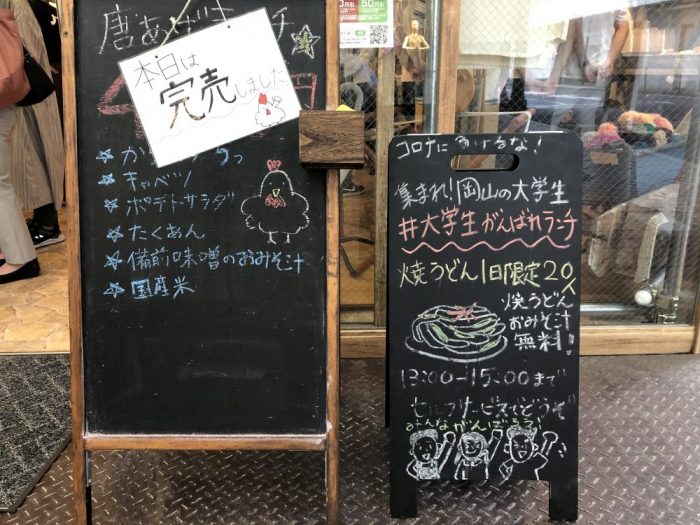 唐あげ
本日は
完売しました
キャベツ
ポテトサラダ
たくあん
備前味噌のおみそ汁
国産米
コロナに負けるな！
集まれ！岡山の大学生
#大学生がんばれランチ
焼うどん1日限定20人
焼うどん
おみそ汁
無料！
13:00-15:00まで
セルフサービスでどうぞ
みんながんばろう！